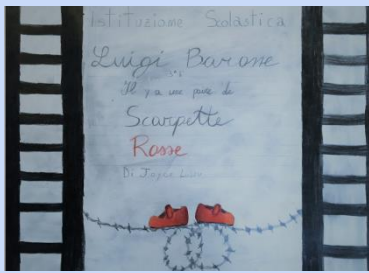 Istituzione Scolastica
Luigi Barone
Scarpette
Rosse
Di Joyce Lussu